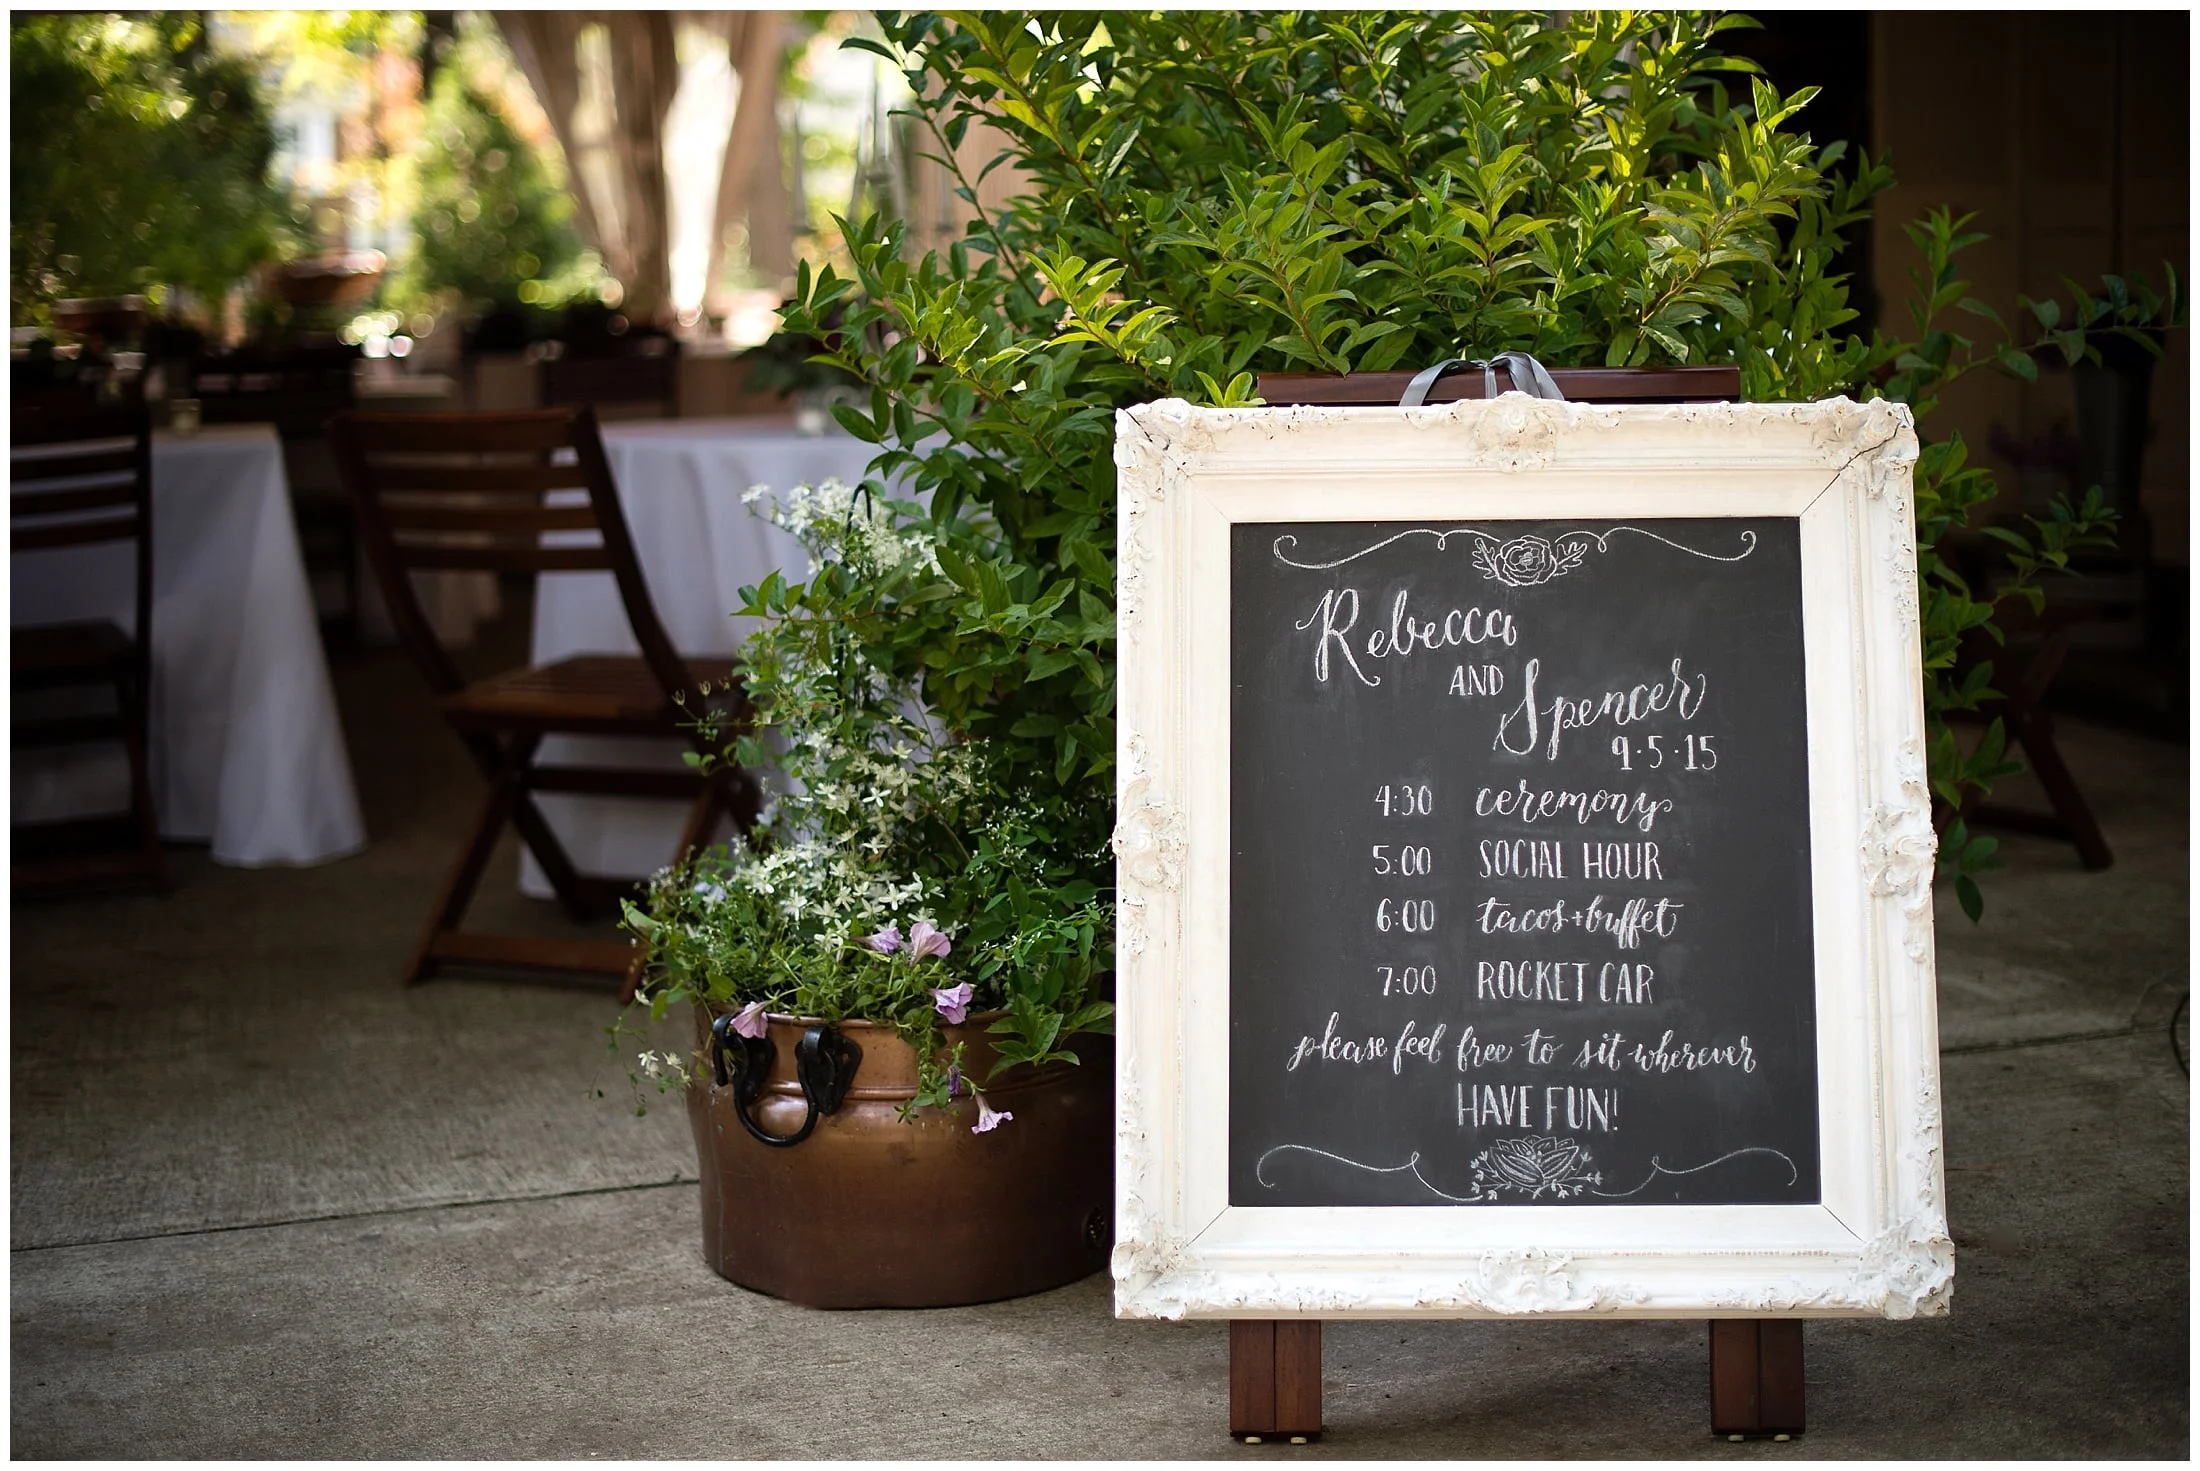 Rebecca
AND
Spencer
9·5·15
4:30 ceremony
5:00 SOCIAL HOUR
6:00 tacos + buffet
7:00 ROCKET CAR
please feel free to sit wherever
HAVE FUN!